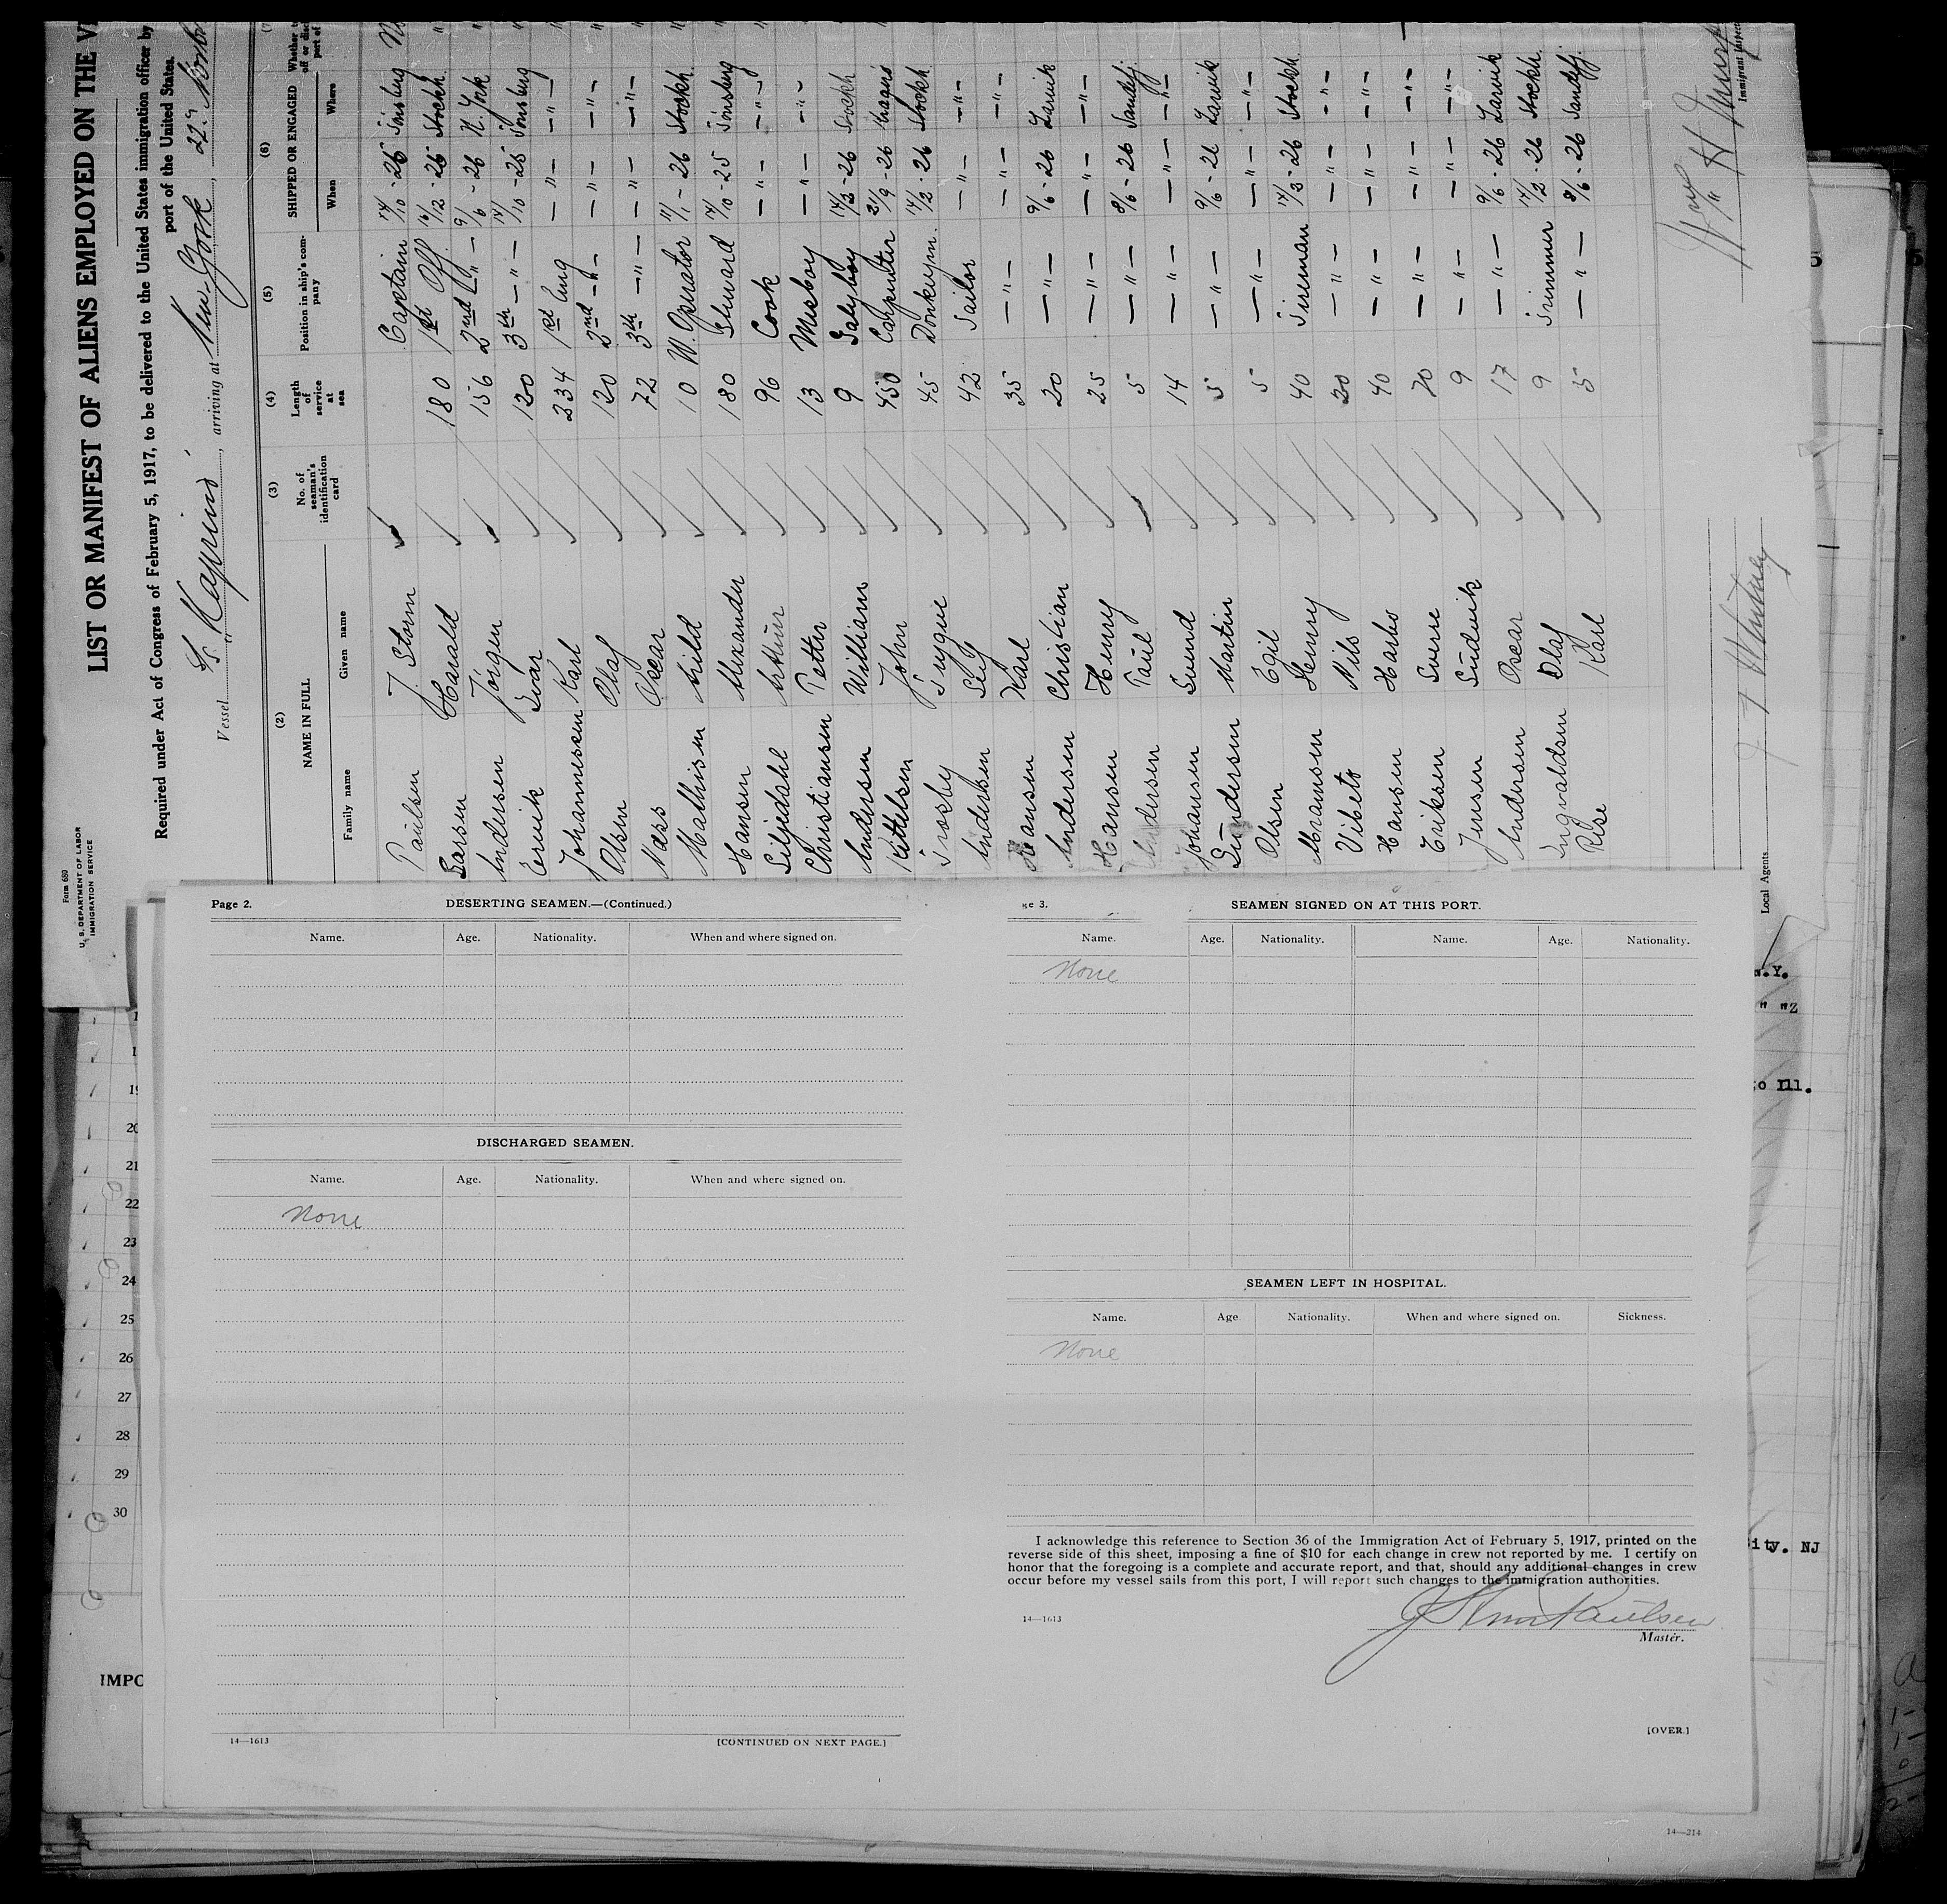 Form 680
U. S. DEPARTMENT OF LABOR
IMMIGRATION SERVICE
LIST OR MANIFEST OF ALIENS EMPLOYED ON THE
Required under Act of Congress of February 5, 1917, to be delivered to the United States immigration officer by
port of the United States.
Vessel S/S "Kaprino", arriving at New York, 22nd
(2) (3) (4) (5) (6)
NAME IN FULL
Family name Given name
No. of seaman's identification card
Length of service at sea
Position in ship's company
SHIPPED OR ENGAGED
When Where
Whether to
off or disc
part of
Paulsen J. Storm Captain 14/10-25 Tönsberg
Larsen Harald 180 1st Off. 16/12-25 Stockh.
Andersen Jörgen 156 2nd —"— 9/6-26 N. York
Ervik Ivar 120 3th —"— 14/10-25 Tönsberg
Johannessen Karl 234 1st Eng —"— —"—
Olsen Olaf 120 2nd —"— —"— —"—
Næss Oscar 72 3th —"— —"— —"—
Mathisen Arild 10 W. Operator 11/1-26 Stockh.
Hansen Alexander 180 Steward 14/10-25 Tönsberg
Siljedahl Arthur 96 Cook —"— —"—
Christiansen Petter 13 Messboy —"— —"—
Andersen William 9 Galyboy 14/2-26 Stockh
Kittelsen John 450 Carpenter 21/9-26 Kragerö
Trosby Trygve 45 Donkeym. 14/2-26 Stockh.
Andersen Leif 42 Sailor —"— —"—
Hansen Karl 35 —"— —"— —"—
Andersen Christian 20 —"— 9/6-26 Larvik
Hansen Henry 25 —"— —"— —"—
Andersen Paul 5 —"— 8/6-26 Sandefj.
Johansen Svend 14 —"— —"— —"—
Gundersen Martin 5 —"— 9/6-26 Larvik
Olsen Egil 5 —"— —"— —"—
Abramsen Henry 40 Fireman 14/2-26 Stockh.
Vibeto Nils 20 —"— —"— —"—
Hansen Harbo 40 —"— —"— —"—
Eriksen Sverre 70 —"— —"— —"—
Jensen Ludvik 9 —"— —"— —"—
Andersen Oscar 17 —"— 9/6-26 Larvik
Ingvaldsen Olaf 9 Trimmer 14/2-26 Stockh.
Rise Karl 35 —"— 8/6-26 Sandefj.
Local Agents
Immigrant Inspec
Page 2.
DESERTING SEAMEN.—(Continued.)
Name. Age. Nationality. When and where signed on.
DISCHARGED SEAMEN.
Name. Age. Nationality. When and where signed on.
None
14—1613
[CONTINUED ON NEXT PAGE.]
ge 3.
SEAMEN SIGNED ON AT THIS PORT.
Name. Age. Nationality. Name. Age. Nationality.
None
SEAMEN LEFT IN HOSPITAL.
Name. Age Nationality. When and where signed on. Sickness.
None
I acknowledge this reference to Section 36 of the Immigration Act of February 5, 1917, printed on the
reverse side of this sheet, imposing a fine of $10 for each change in crew not reported by me. I certify on
honor that the foregoing is a complete and accurate report, and that, should any additional changes in crew
occur before my vessel sails from this port, I will report such changes to the immigration authorities.
J Storm Paulsen
Master.
14—1613
[OVER.]
19
20
21
22
23
24
25
26
27
28
29
30
IMPO
.Y.
" "Z
o Ill.
ity. NJ
14—214